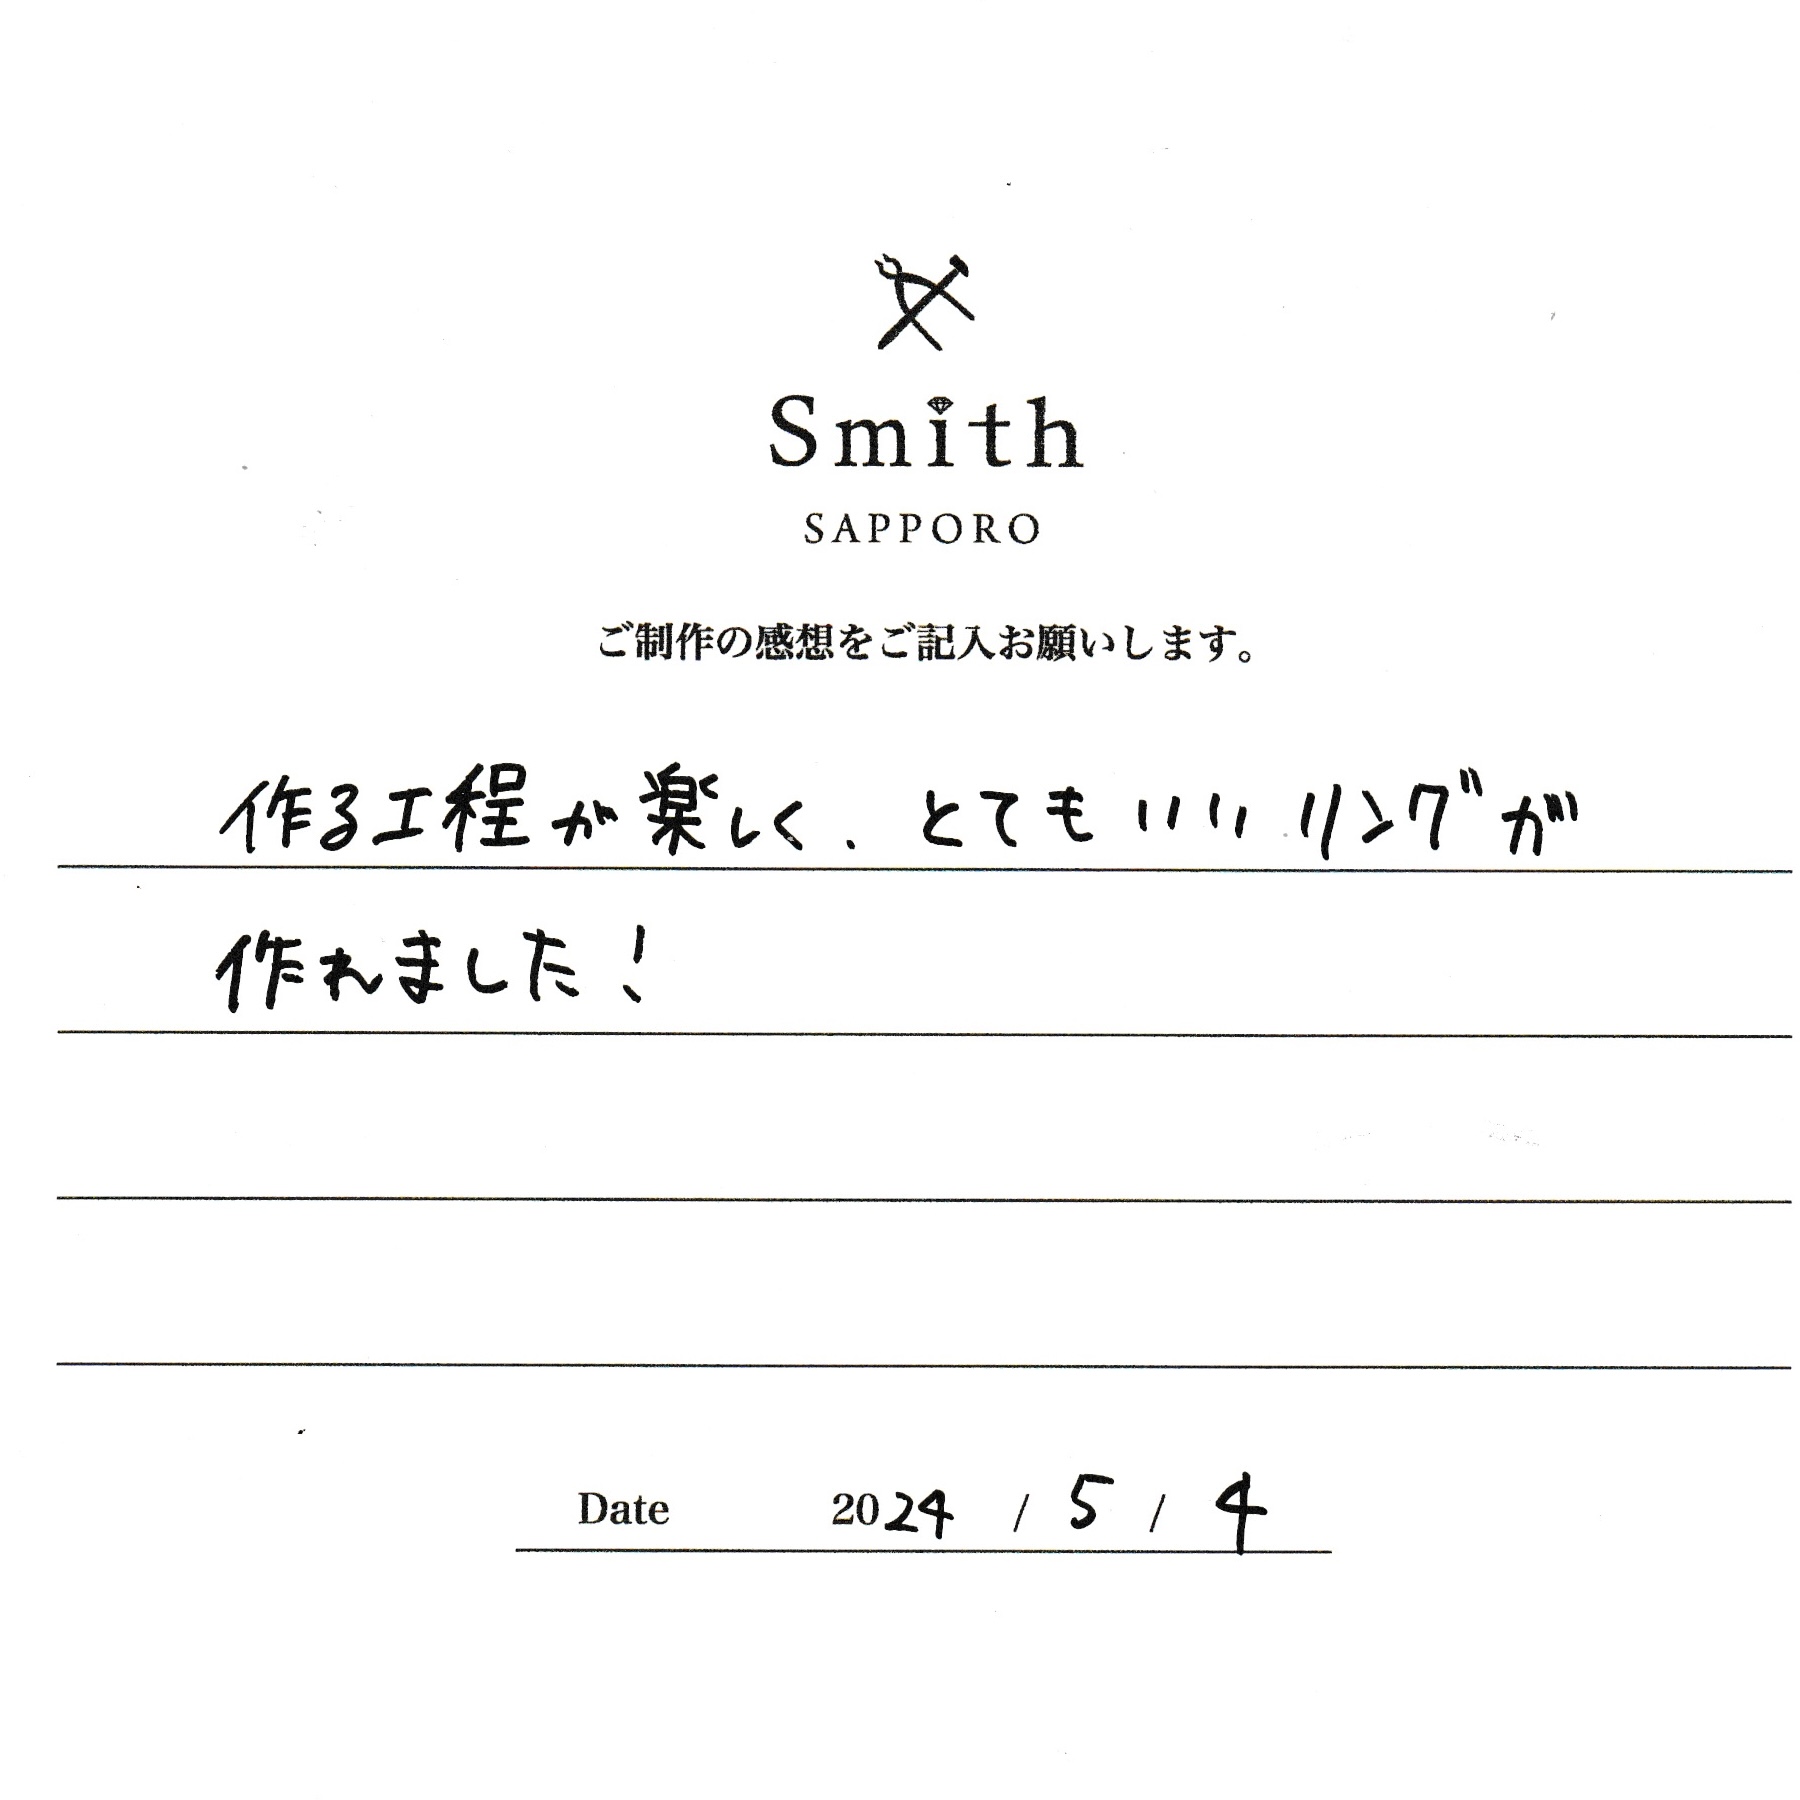 Smith
SAPPORO
ご制作の感想をご記入お願いします。
作る工程が楽しく、とてもいいリングが
作れました！
Date 2024 / 5 / 4